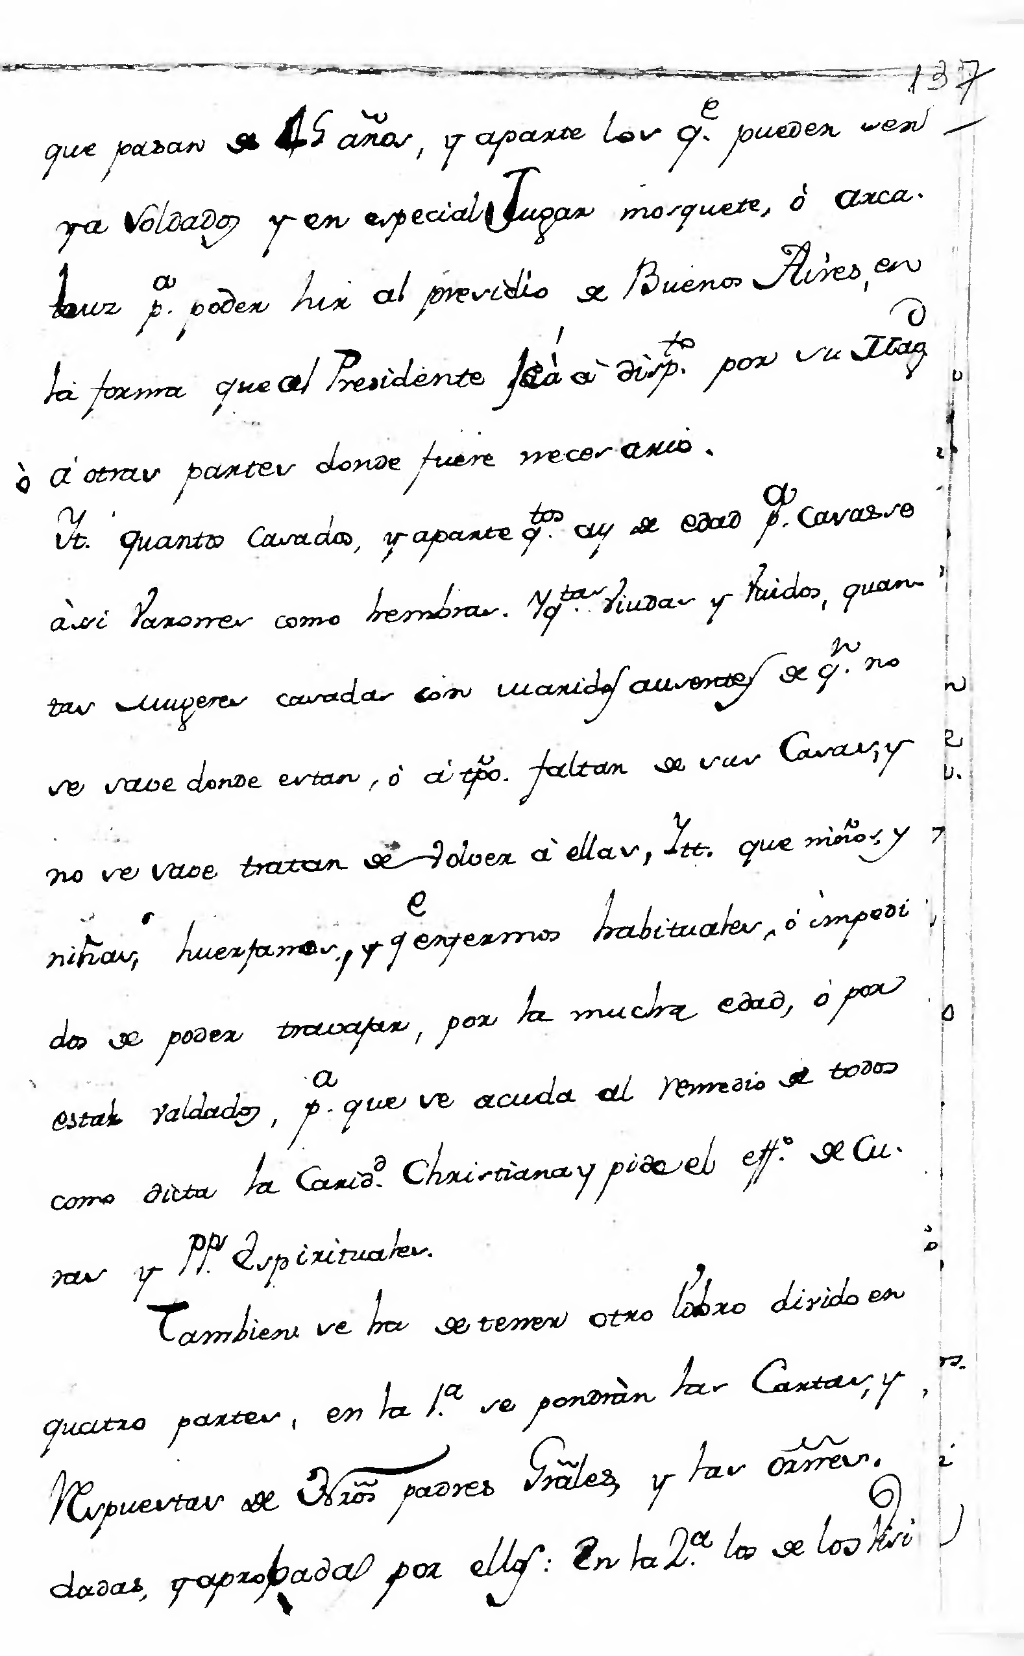 137
que pasan de 45 años, y aparte los q.e pueden ser
ya Soldados y en especial Jugar mosquete, ò arca.
buz p.a poder hir al presidio de Buenos Aires, en
la forma que al Presidente està à disp.to por su Mag.d
ò à otras partes donde fuere necesario.
Yt. quantos Casados, y aparte q.tos ay de edad p.a casarse
àsi Varones como hembras. Y q.tas Viudas y Viudos, quan-
tas Mugeres casadas con maridos ausentes de q.n no
se save donde estan, ò à tpõ. faltan de sus Casas, y
no se save tratan de volver à ellas, Ytt. que niños, y
niñas, huerfanos, y q.e enfermos habituales, ò impedi
dos de poder travajar, por la mucha edad, ò por
estar valdados, p.a que se acuda al remedio de todos
como dicta la Carid.d Christiana y pide el off.o de Cu.
ras y PP.s Espirituales.
Tambien se ha de tener otro libro divido en
quatro partes, en la 1.a se pondràn las Cartas, y
Respuestas de Nr̃os padres Gr̃ales, y las or̃nes.
dadas, y aprobadas por ellos: En la 2.a los de los Visi